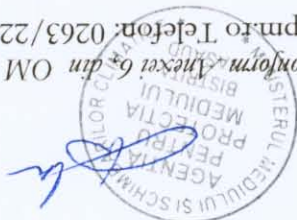 MINISTERUL MEDIULUI ȘI SCHIM
ILOR CLIMA
AGENȚIA
PENTRU
PROTECȚIA
MEDIULUI
BISTRIȚA
NĂSĂUD
onform Anexei 6, din OM
pm.ro Telefon: 0263/22